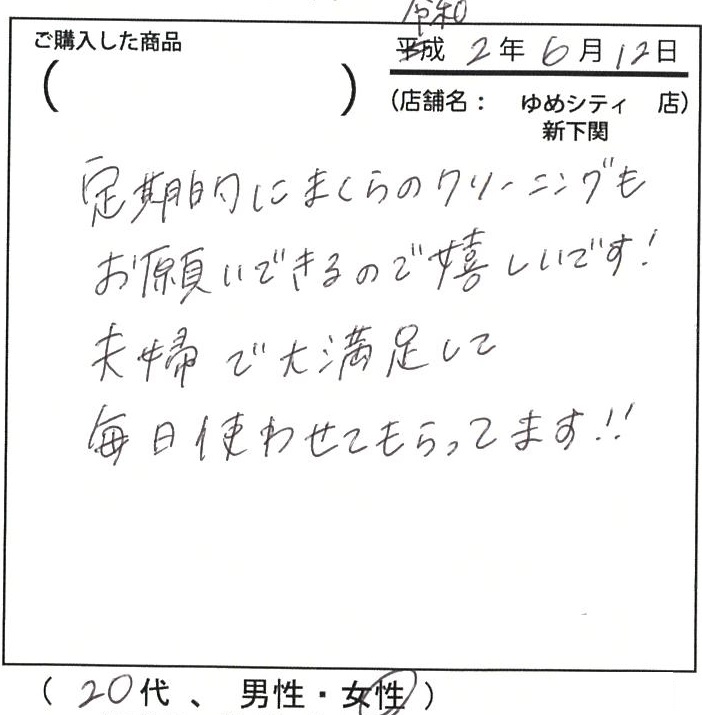 令和
ご購入した商品
平成 2年 6月 12日
(　　　　)
(店舗名： ゆめシティ 店)
新下関
定期的にまくらのクリーニングも
お願いできるので嬉しいです!
夫婦で大満足して
毎日使わせてもらってます!!
( 20代 、 男性・女性 )